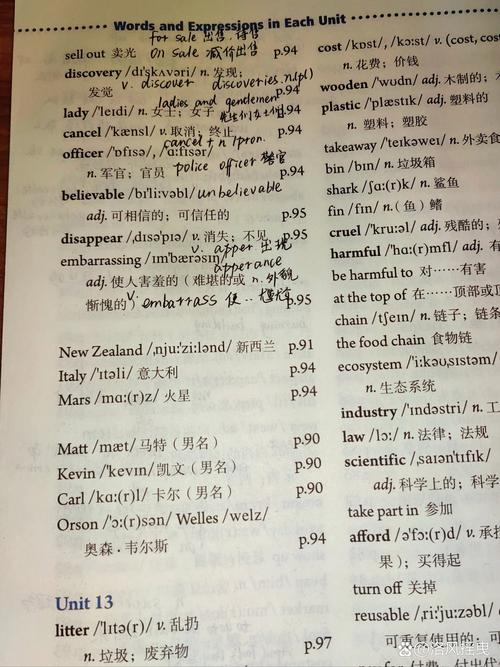 Words and Expressions in Each Unit
for sale 出售,待售
sell out 卖光 on sale 减价出售 p.94
discovery /dɪˈskʌvəri/ n. 发现； p.94
发觉 v. discover discoveries n.(pl)
ladies and gentlemen
lady /ˈleɪdi/ n. 女士；女子 p.94
cancel /ˈkænsl/ v. 取消；终止 p.94
cancel + n / pron.
officer /ˈɒfɪsə/, /ˈɑːfɪsər/
n. 军官；官员 police officer 警官 p.94
believable /bɪˈliːvəbl/ unbelievable
adj. 可相信的；可信任的 p.95
disappear /ˌdɪsəˈpɪə/ v. 消失；不见 p.95
v. apper 出现
embarrassing /ɪmˈbærəsɪŋ/
apperance
adj. 使人害羞的（难堪的或 n. 外貌
惭愧的） v. embarrass 使.. p.95
New Zealand /ˌnjuːˈziːlənd/ 新西兰 p.91
Italy /ˈɪtəli/ 意大利 p.94
Mars /mɑː(r)z/ 火星 p.94
Matt /mæt/ 马特（男名） p.90
Kevin /ˈkevɪn/ 凯文（男名） p.90
Carl /kɑː(r)l/ 卡尔（男名） p.90
Orson /ˈɔː(r)sən/ Welles /welz/
奥森·韦尔斯 p.94
Unit 13
litter /ˈlɪtə(r)/ v. 乱扔
n. 垃圾；废弃物 p.97
cost /kɒst/, /kɔːst/ v. (cost, cost
n. 花费；价钱
wooden /ˈwʊdn/ adj. 木制的；
plastic /ˈplæstɪk/ adj. 塑料的
n. 塑料；塑胶
takeaway /ˈteɪkəweɪ/ n. 外卖食
bin /bɪn/ n. 垃圾箱
shark /ʃɑː(r)k/ n. 鲨鱼
fin /fɪn/ n.（鱼）鳍
cruel /ˈkruːəl/ adj. 残酷的；
harmful /ˈhɑː(r)mfl/ adj. 有
be harmful to 对……有害
at the top of 在……顶部或顶
chain /tʃeɪn/ n. 链子；链条
the food chain 食物链
ecosystem /ˈiːkəʊˌsɪstəm/
n. 生态系统
industry /ˈɪndəstri/ n. 工
law /lɔː/ n. 法律；法规
scientific /ˌsaɪənˈtɪfɪk/
adj. 科学上的；科学
take part in 参加
afford /əˈfɔː(r)d/ v. 承担
果）；买得起
turn off 关掉
reusable /ˌriːˈjuːzəbl/
可重复使用的；可